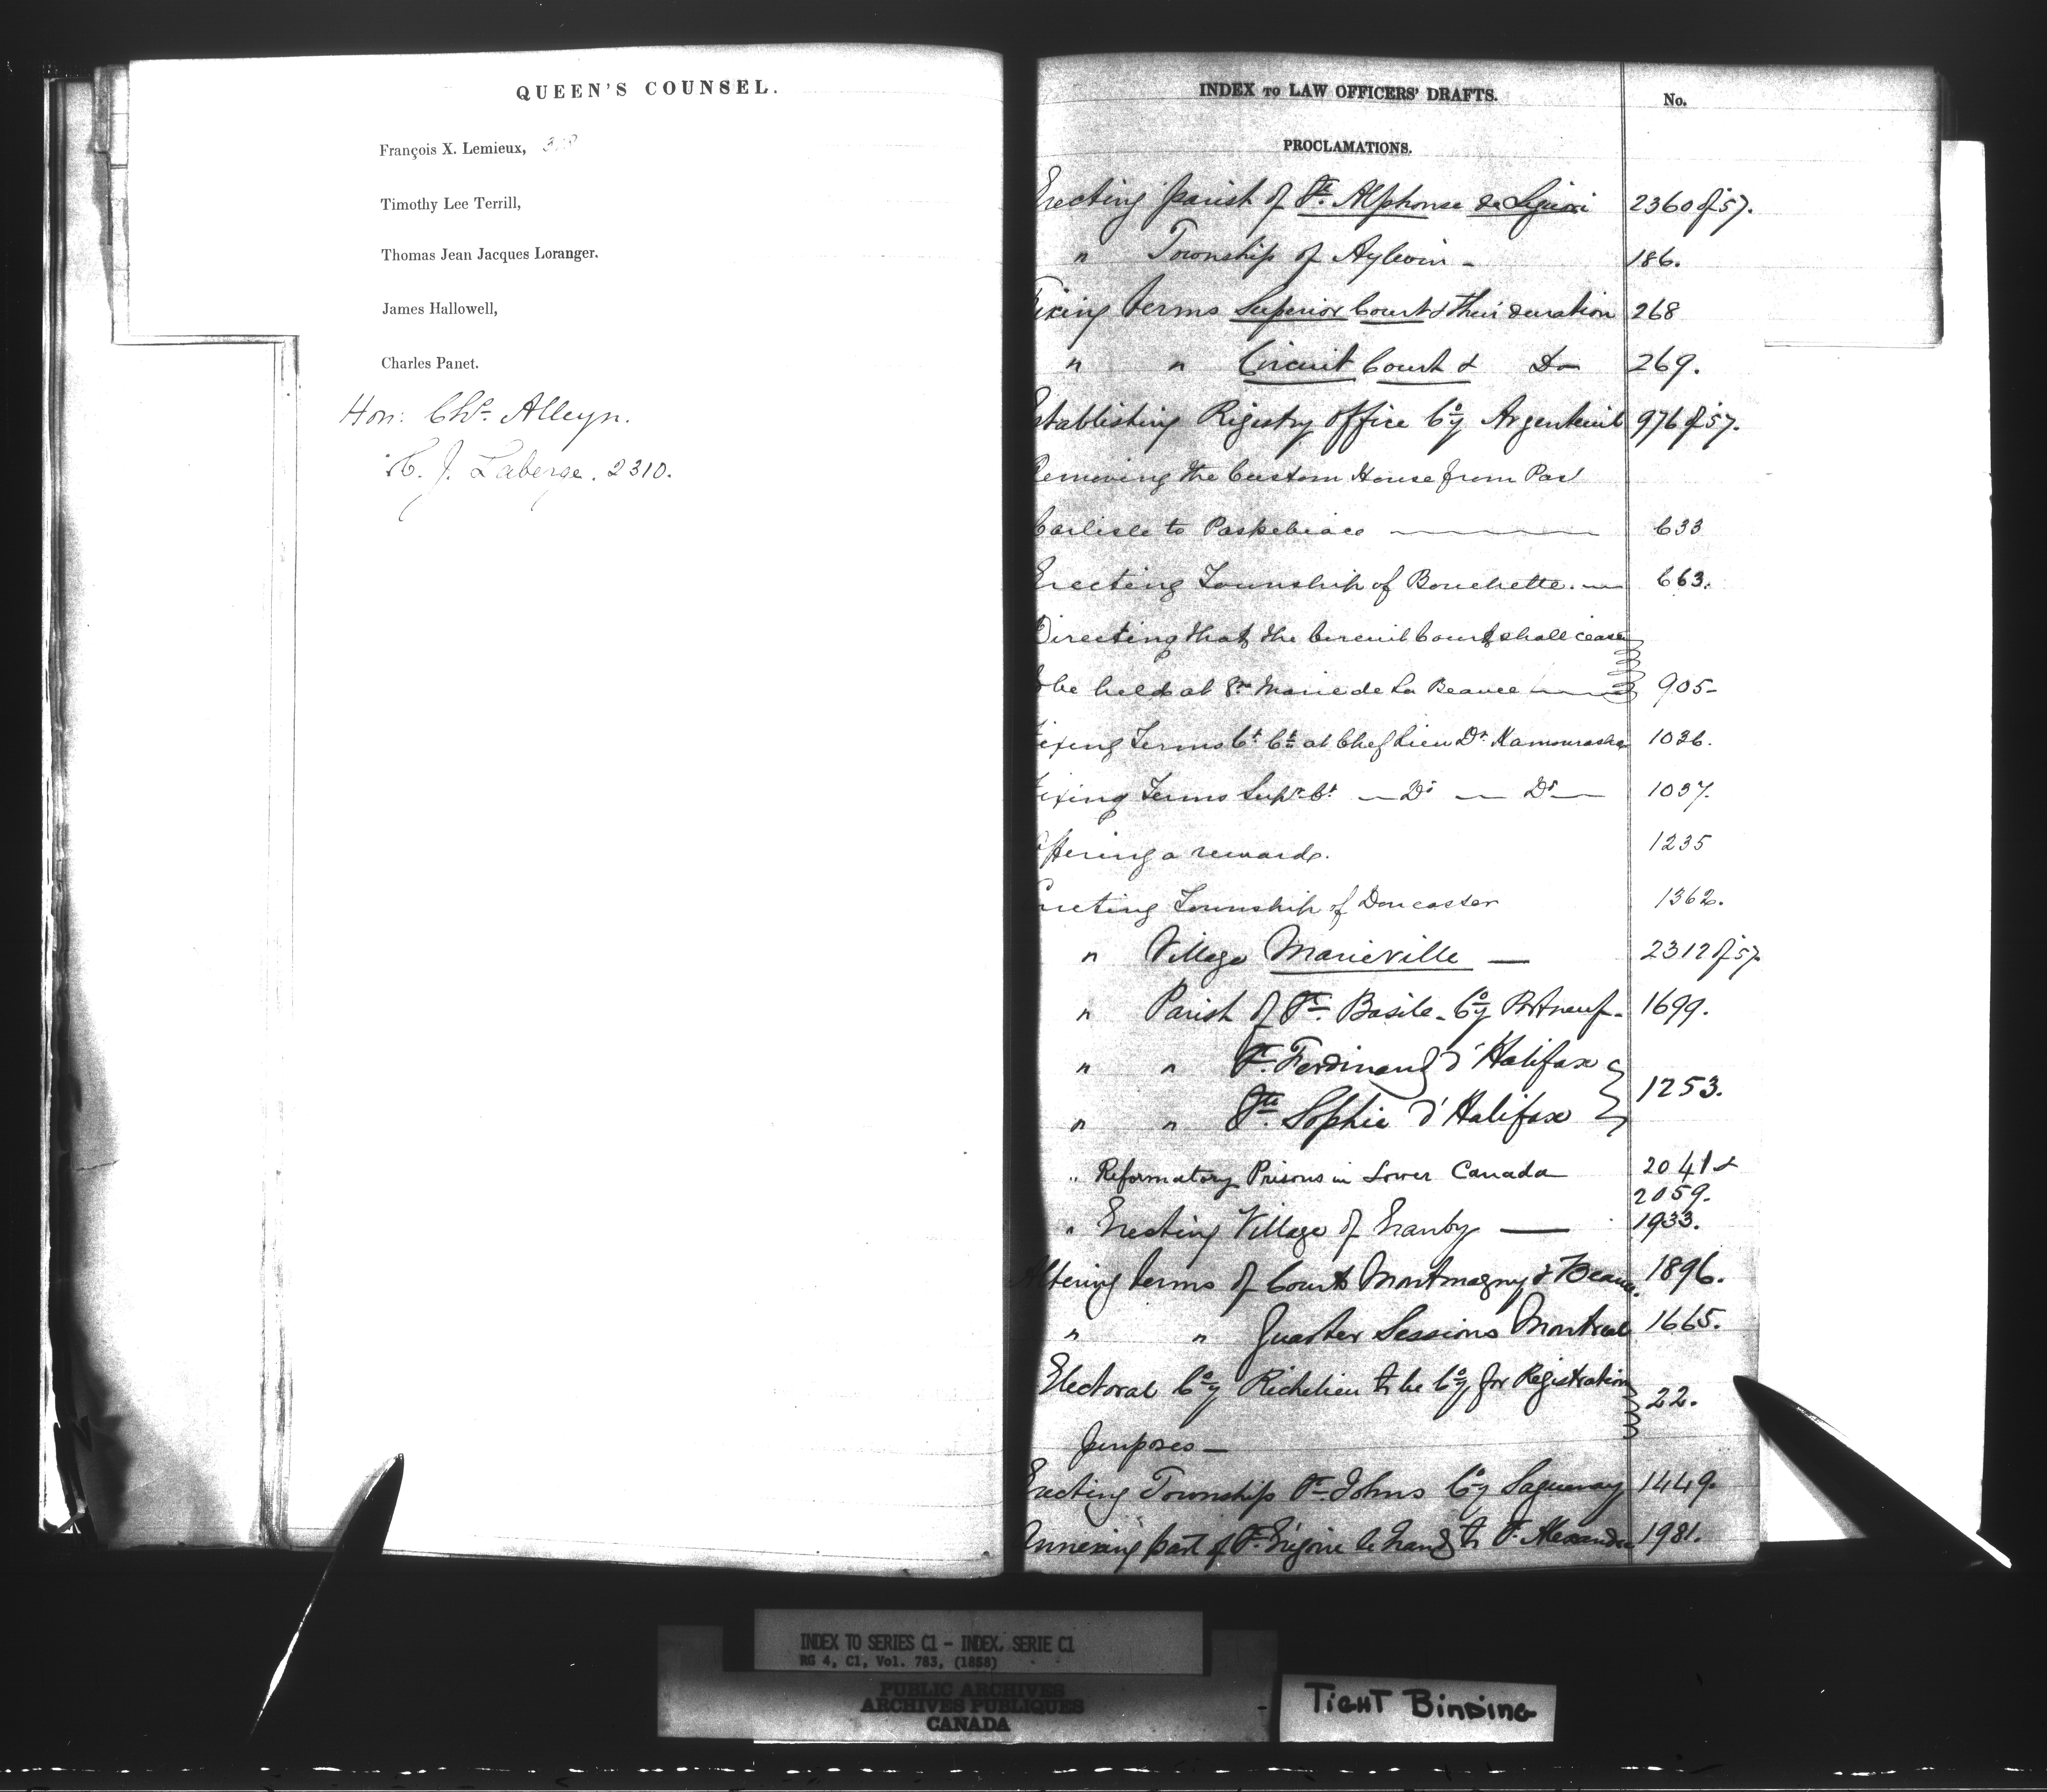 QUEEN'S COUNSEL.
François X. Lemieux,
Timothy Lee Terrill,
Thomas Jean Jacques Loranger.
James Hallowell,
Charles Panet.
Hon: Chs. Alleyn.
C. J. Laberge. 2310.
INDEX TO LAW OFFICERS' DRAFTS.
No.
PROCLAMATIONS.
Erecting parish of St. Alphonse de Liguori 2360 of 57.
" Township of Aylwin - 186.
Fixing terms Superior Court & their duration 268
" " Circuit Court & Do 269.
Establishing Registry Office Coy Argenteuil 976 of 57.
Removing the Custom House from Port
Carlisle to Paspebiac 633
Erecting Township of Bouchette. 663.
Directing that the Circuit Court shall cease
to be held at St. Marie de La Beauce 905-
Fixing Terms Ct. Ct. at Chef Lieu Dt. Kamouraska 1036.
Fixing Terms Supr. Ct. — Do — Do — 1037.
Offering a reward. 1235
Erecting Township of Doncaster 1362.
" Village Marieville — 2312 of 57
" Parish of St. Basile - Coy Portneuf - 1699.
" " St. Ferdinand d'Halifax
" " Ste. Sophie d'Halifax } 1253.
" Reformatory Prisons in Lower Canada 2041 &
2059.
" Erecting Village of Granby — 1933.
Altering terms of Courts Montmagny & Beauce. 1896.
" " Quarter Sessions Montreal 1665.
Electoral Coy Richelieu to be Coy for Registration
purposes — 22.
Erecting Township St. Johns Coy Saguenay 1449.
Annexing part of St. Grégoire le Grand to St. Alexandre 1981.
INDEX TO SERIES C1 - INDEX, SERIE C1
RG 4, C1, Vol. 783, (1858)
PUBLIC ARCHIVES
ARCHIVES PUBLIQUES
CANADA
TIGHT BINDING